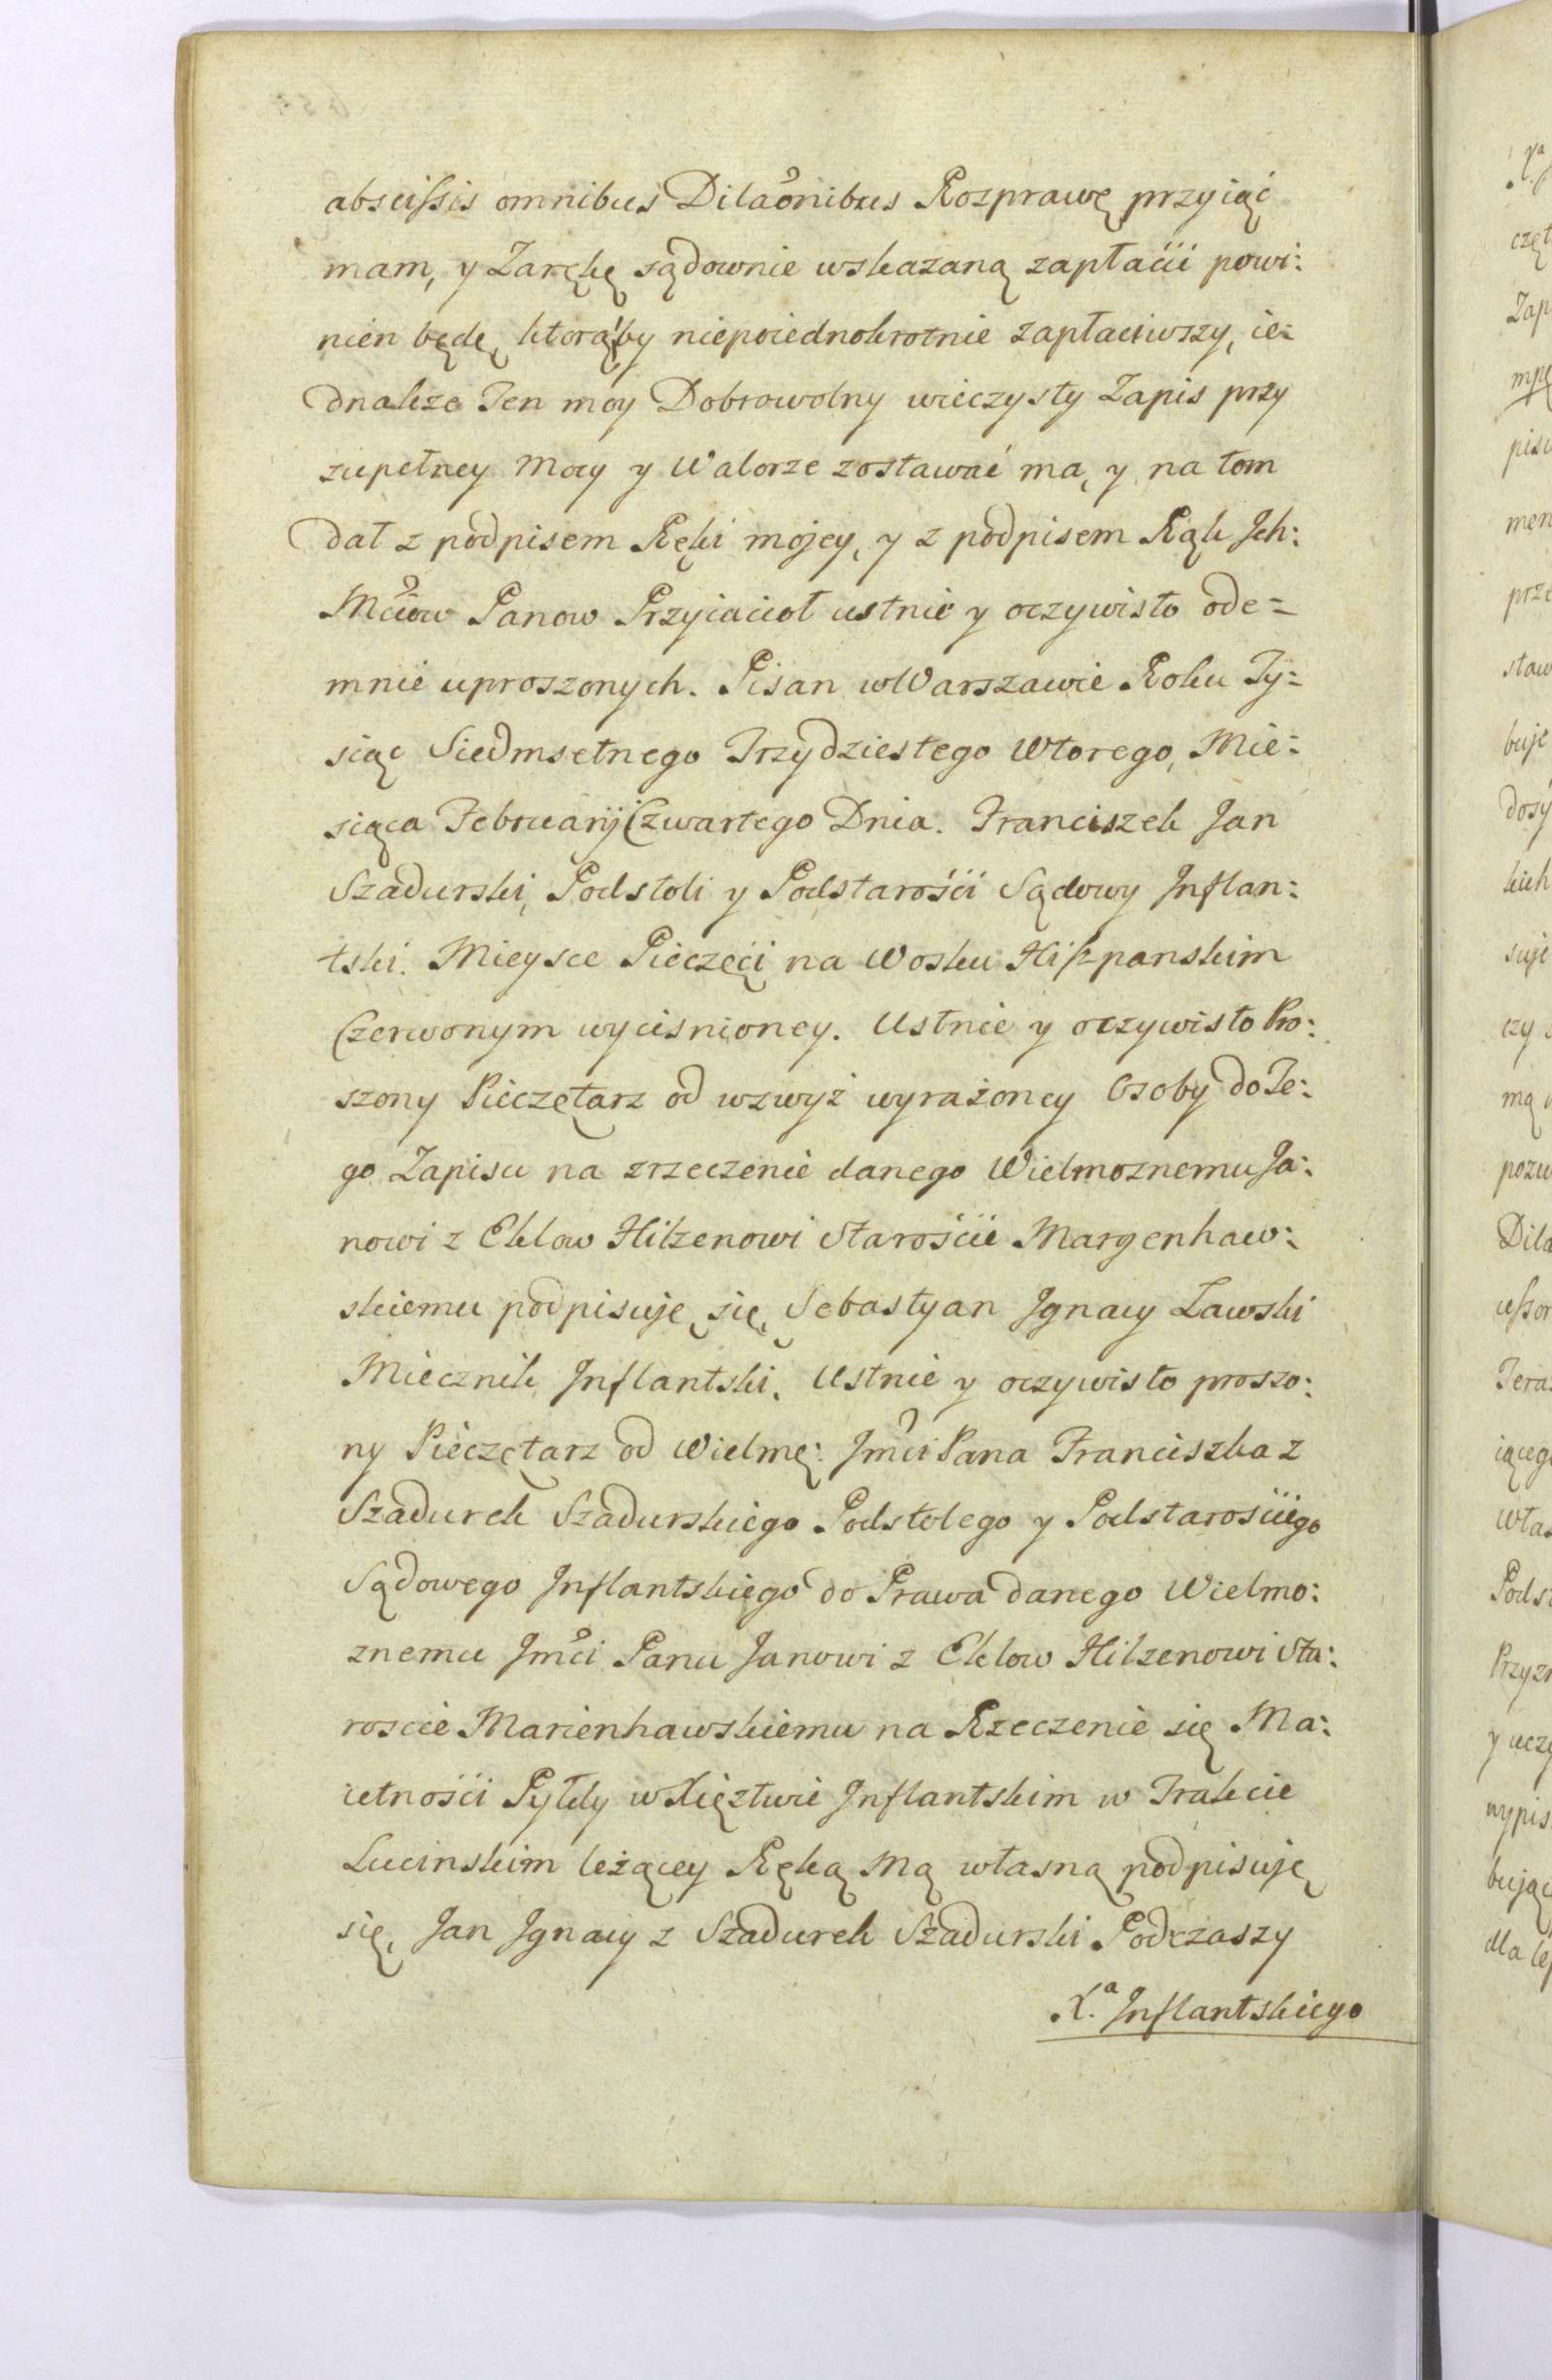 abscissis omnibus Dilaonibus Rozprawę przyiąć
mam, y Zarękę sądownie wskazaną zapłacić powi:
nien będę, ktorąby niepoiednokrotnie zapłaciwszy, ie=
dnakze Ten moy Dobrowolny wieczysty Zapis przy
zupełney Mocy y Walorze zostawać ma, y na tom
dał z podpisem Ręki mojey, y z podpisem Rąk Ich:
Mciow Panow Przyiacioł ustnie y oczywisto ode=
mnie uproszonych. Pisan w Warszawie Roku Ty=
siąc Siedmsetnego Trzydziestego Wtorego, Mie=
siąca Februarij Czwartego Dnia. Franciszek Jan
Szadurski, Podstoli y Podstarości Sądowy Inflan:
tski. Mieysce Pieczęci na Wosku Hiszpanskim
Czerwonym wycisnioney. Ustnie y oczywisto Pro:
szony Pieczętarz od wzwyż wyrażoney Osoby do Te:
go Zapisu na zrzeczenie danego Wielmoznemu Ja:
nowi z Eklow Hilzenowi Starościе Margenhaw:
skiemu podpisuję się, Sebastyan Ignacy Ławski
Miecznik Inflantski. Ustnie y oczywisto proszo:
ny Pieczętarz od Wielmę: Jmci Pana Franciszka z
Szadurek Szadurskiego Podstolego y Podstarosciego
Sądowego Inflantskiego do Prawa danego Wielmo:
znemu Jmci Panu Janowi z Eklow Hilzenowi Sta:
roscie Marienhawskiemu na Rzeczenie się Ma:
ietności Pyłdy w Xięztwie Inflantskim w Trakcie
Lucinskim leżącey Ręką Mą własną podpisuję
się, Jan Ignacy z Szadurek Szadurski Podczaszy
X.ª Inflantskiego